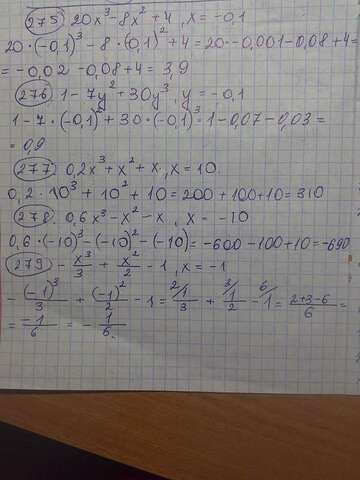 275) 20x³-8x²+4, x=-0,1
20·(-0,1)³-8·(-0,1)²+4=20·-0,001-0,08+4=
=-0,02-0,08+4=3,9
276) 1-7y²+30y³, y=-0,1
1-7·(-0,1)²+30·(-0,1)³=1-0,07-0,03=
=0,9
277) 0,2x³+x²+x, x=10
0,2·10³+10²+10=200+100+10=310
278) 0,6x³-x²-x, x=-10
0,6·(-10)³-(-10)²-(-10)=-600-100+10=-690
279) -x³/3+x²/2-1, x=-1
-(-1)³/3+(-1)²/2-1=²⁄1/3+³⁄1/2-⁶⁄1=2+3-6/6=
=-1/6=-1/6.